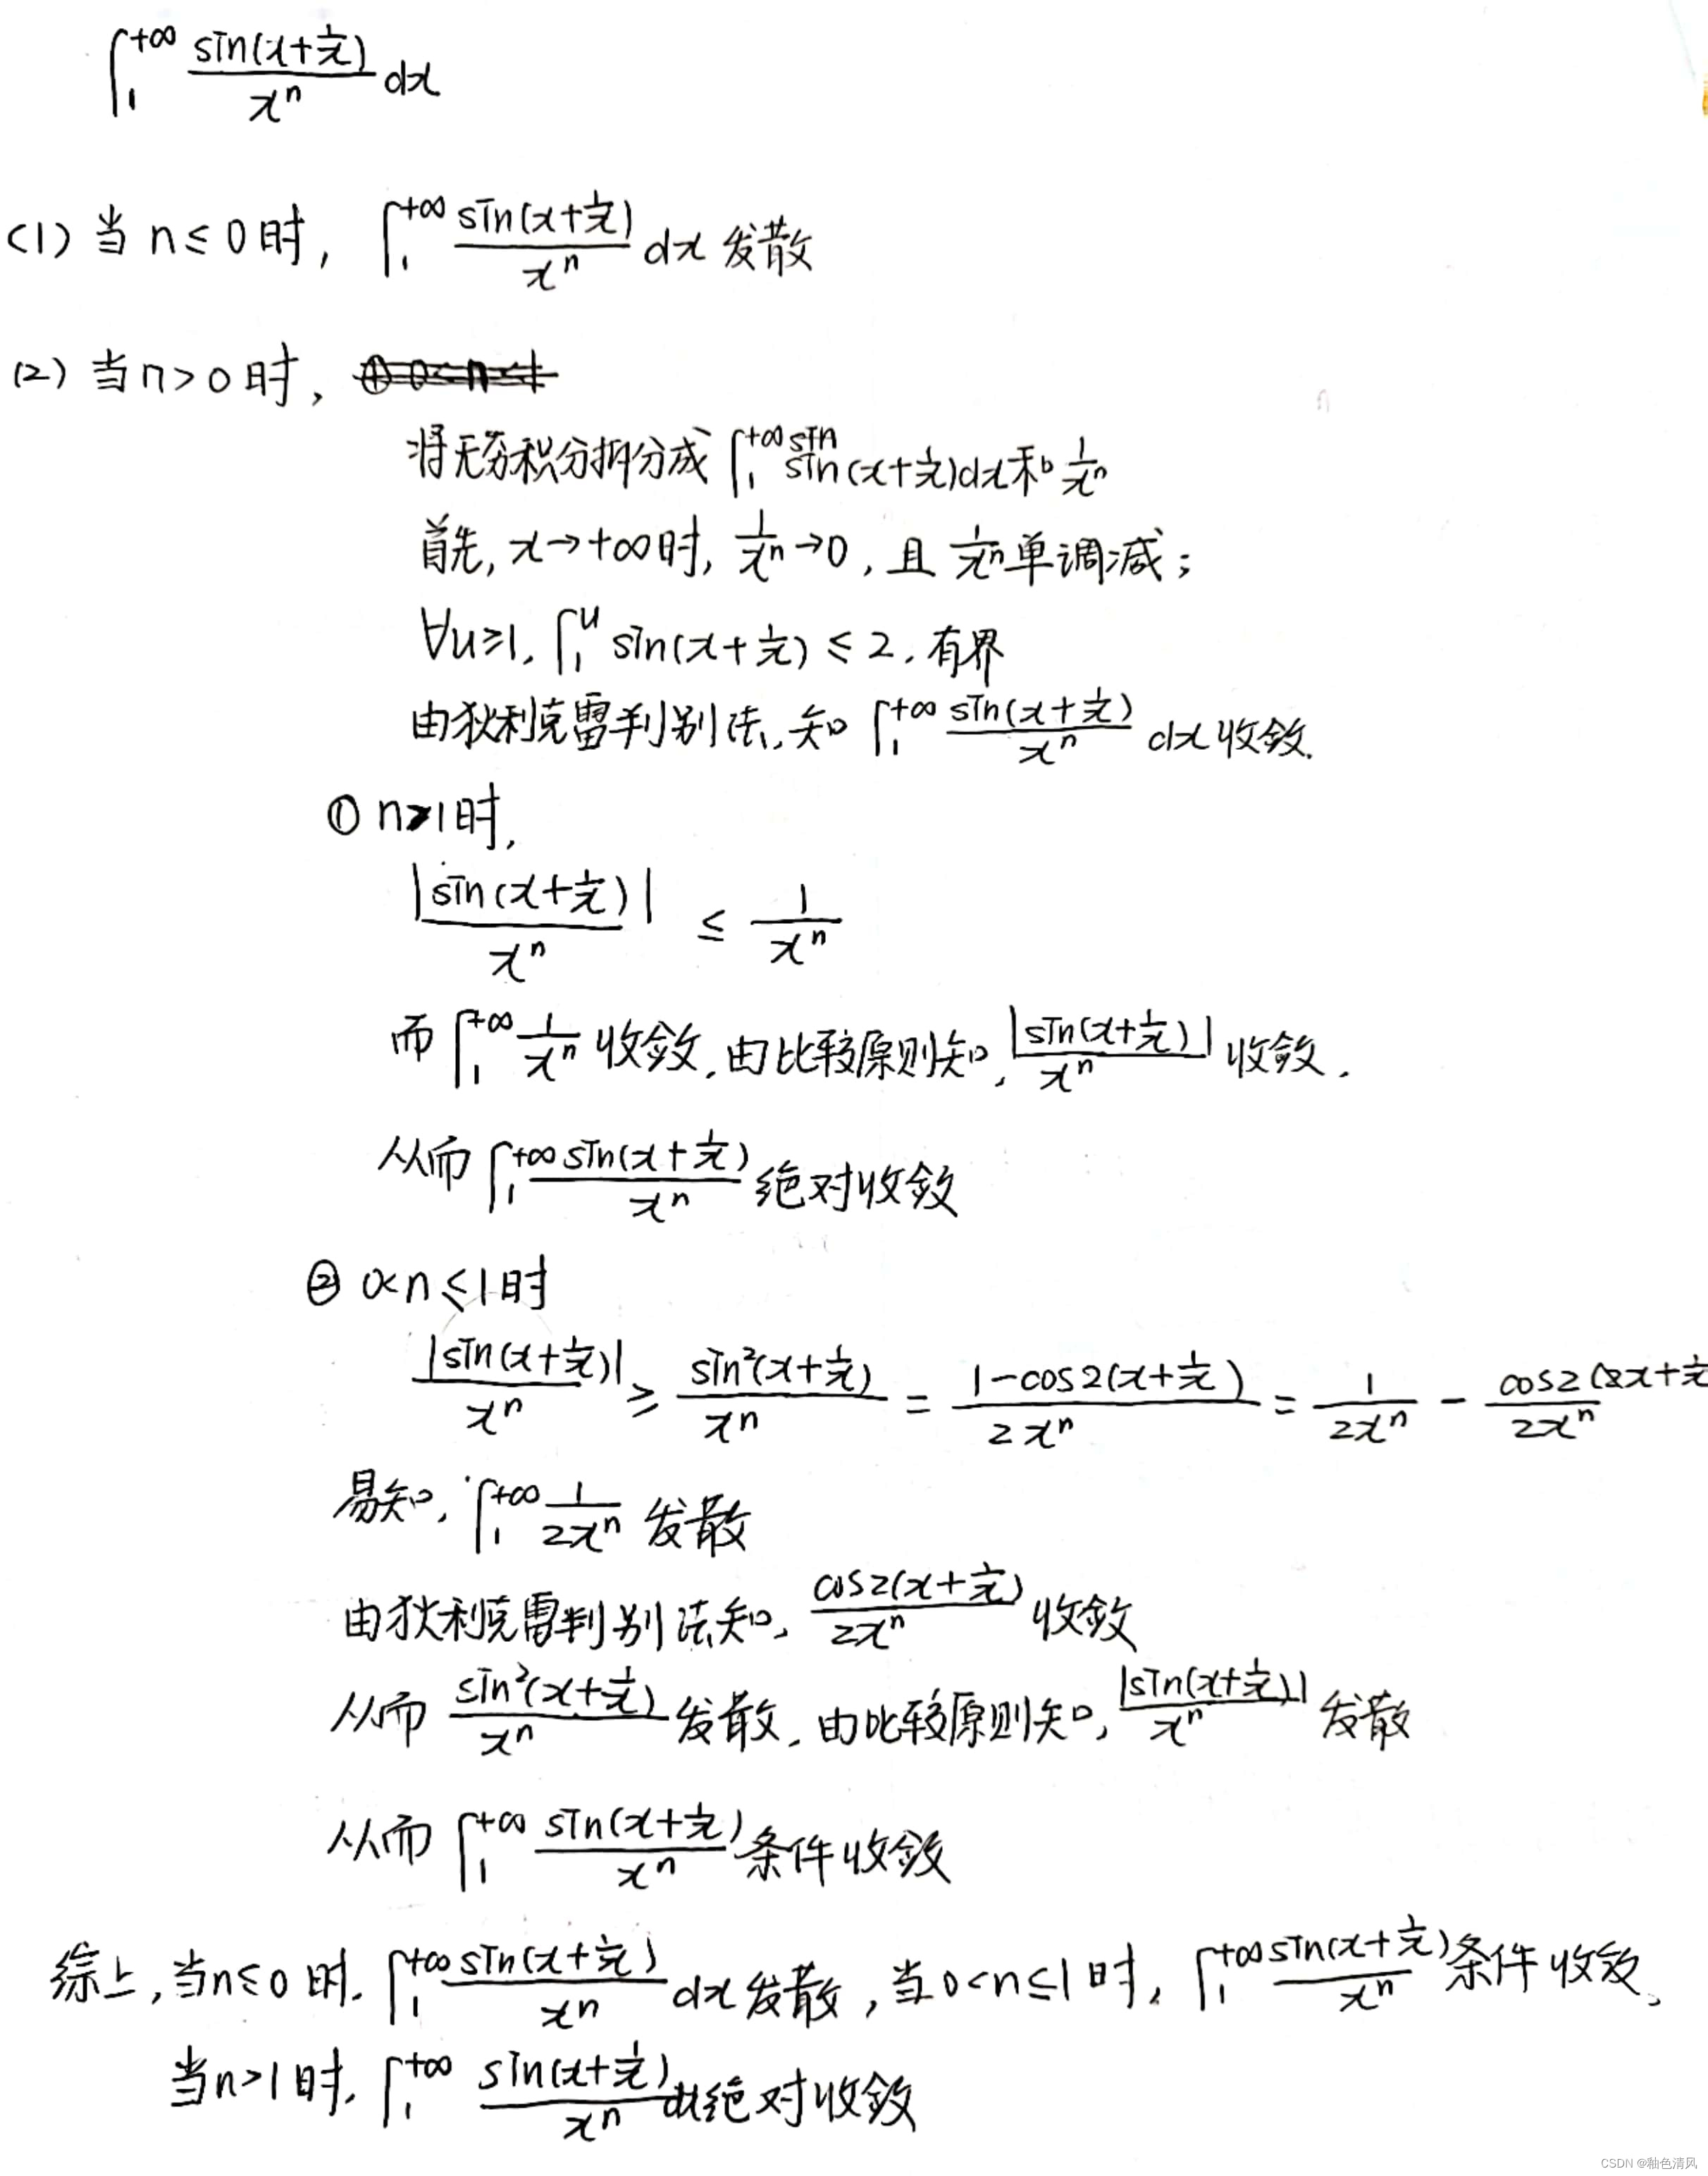 ∫₁^{+∞} sin(x+1/x)/xⁿ dx
(1) 当 n≤0时, ∫₁^{+∞} sin(x+1/x)/xⁿ dx 发散
(2) 当n>0时,
将无穷积分拆分成 ∫₁^{+∞} sin sin(x+1/x)dx和 1/xⁿ
首先, x→+∞时, 1/xⁿ→0, 且 1/xⁿ 单调减;
∀u≥1, ∫₁^u sin(x+1/x) ≤ 2, 有界
由狄利克雷判别法, 知 ∫₁^{+∞} sin(x+1/x)/xⁿ dx 收敛.
① n>1时,
|sin(x+1/x)|/xⁿ ≤ 1/xⁿ
而 ∫₁^{+∞} 1/xⁿ 收敛, 由比较原则知, |sin(x+1/x)|/xⁿ 收敛.
从而 ∫₁^{+∞} sin(x+1/x)/xⁿ 绝对收敛
② 0<n≤1时
|sin(x+1/x)|/xⁿ ≥ sin²(x+1/x)/xⁿ = 1-cos2(x+1/x)/2xⁿ = 1/2xⁿ - cos2(2x+1/x/2xⁿ
易知, ∫₁^{+∞} 1/2xⁿ 发散
由狄利克雷判别法知, cos2(x+1/x)/2xⁿ 收敛
从而 sin²(x+1/x)/xⁿ 发散, 由比较原则知, |sin(x+1/x)|/xⁿ 发散
从而 ∫₁^{+∞} sin(x+1/x)/xⁿ 条件收敛
综上, 当n≤0 时, ∫₁^{+∞} sin(x+1/x)/xⁿ dx 发散, 当0<n≤1时, ∫₁^{+∞} sin(x+1/x)/xⁿ 条件收敛,
当n>1时, ∫₁^{+∞} sin(x+1/x)/xⁿ dx绝对收敛
CSDN @釉色清风